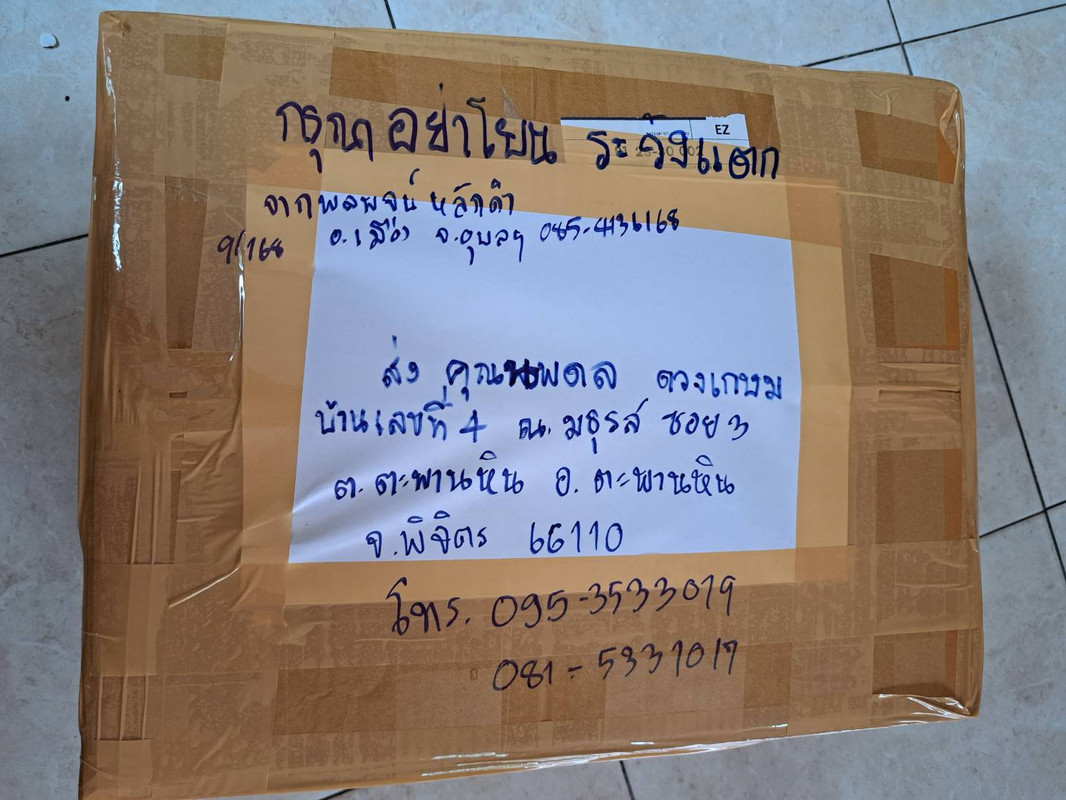 EZ
กรุณา อย่าโยน ระวังแตก
จาก พลพจน์ หลักคำ
9/168 อ.เมือง จ.อุบลฯ 085-4136168
ส่ง คุณนพดล ดวงเกษม
บ้านเลขที่ 4 ถ.มธุรส ซอย 3
ต.ตะพานหิน อ.ตะพานหิน
จ.พิจิตร 66110
โทร. 095-3533019
081-5331019